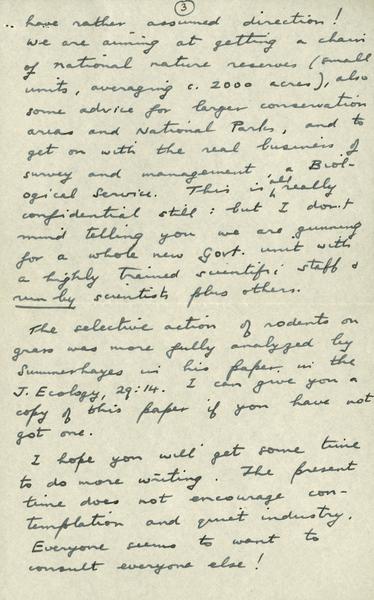 3
have rather assumed direction!
We are aiming at getting a chain
of national nature reserves (small
units, averaging c. 2000 acres), also
some advice for larger conservation
areas and National Parks, and to
get on with the real business of
survey and management, a Biol-
ogical Service. This is all really
confidential still: but I don't
mind telling you we are gunning
for a whole new Govt. unit with
a highly trained scientific staff &
run by scientists plus others.
The selective action of rodents on
grass was more fully analyzed by
Summerhayes in his paper in the
J. Ecology, 29:14. I can give you a
copy of this paper if you have not
got one.
I hope you will get some time
to do more writing. The present
time does not encourage con-
templation and quiet industry.
Everyone seems to want to
consult everyone else!